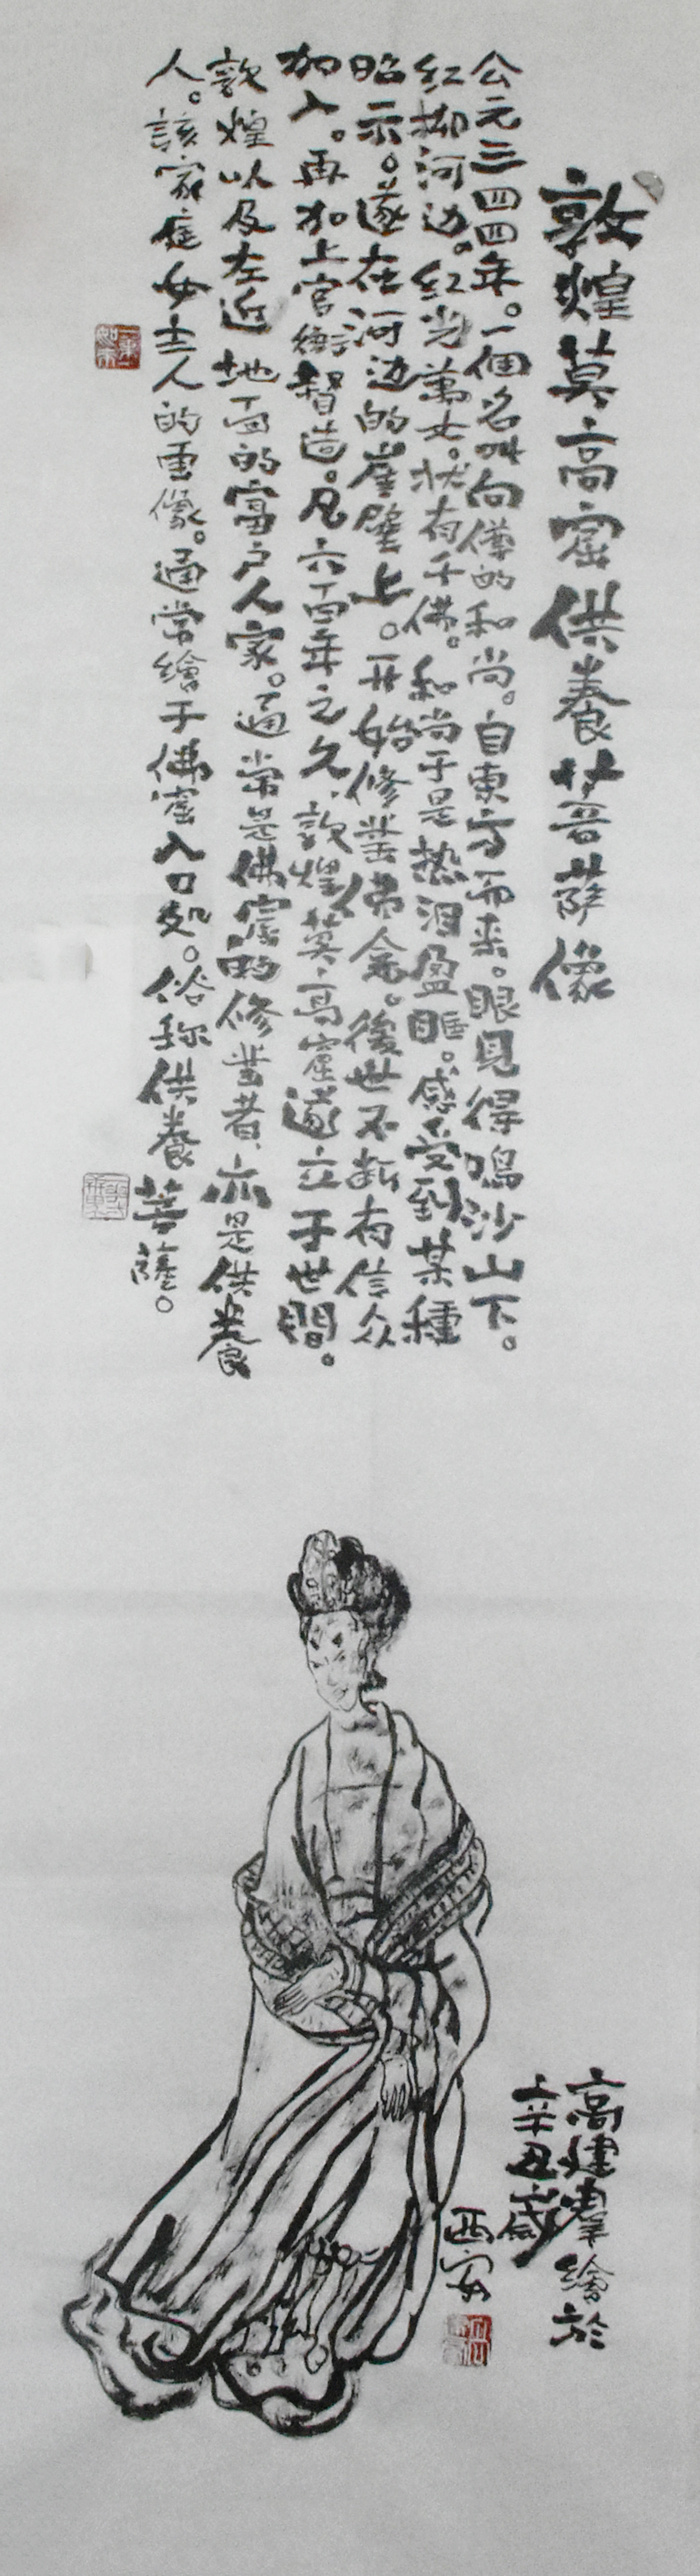 敦煌莫高窟供養菩薩像
公元三四四年。一個名叫向僔的和尚。自東方而来。眼見得鳴沙山下。
红柳河边。红光萬丈。状有千佛。和尚于是热泪盈眶。感受到某種
昭示。遂在河边的崖壁上。开始修凿佛龛。後世不断有信众
加入。再加上官衙督造。凡六百年之久、敦煌莫高窟遂立于世間。
敦煌以及左近地面的富户人家。通常是佛窟的修凿者、亦是供養
人。該家庭女主人的画像。通常繪于佛窟入口処。俗称供養菩薩。
高建群繪於
辛丑歲
西安